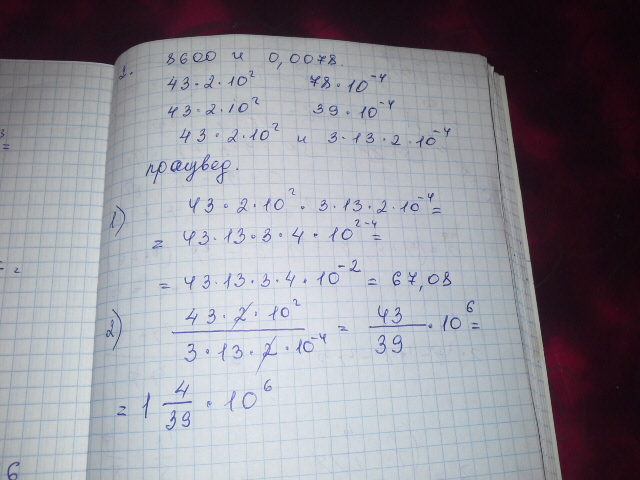 2. 8600 и 0,0078.
43·2·10² 78·10⁻⁴
43·2·10² 39·10⁻⁴
43·2·10² и 3·13·2·10⁻⁴
произвед.
1) 43·2·10²·3·13·2·10⁻⁴=
= 43·13·3·4·10²⁻⁴=
= 43·13·3·4·10⁻² = 67,08
2) 43·2·10² / 3·13·2·10⁻⁴ = 43/39 ·10⁶=
= 1 4/39 · 10⁶
3
=
= 2
6